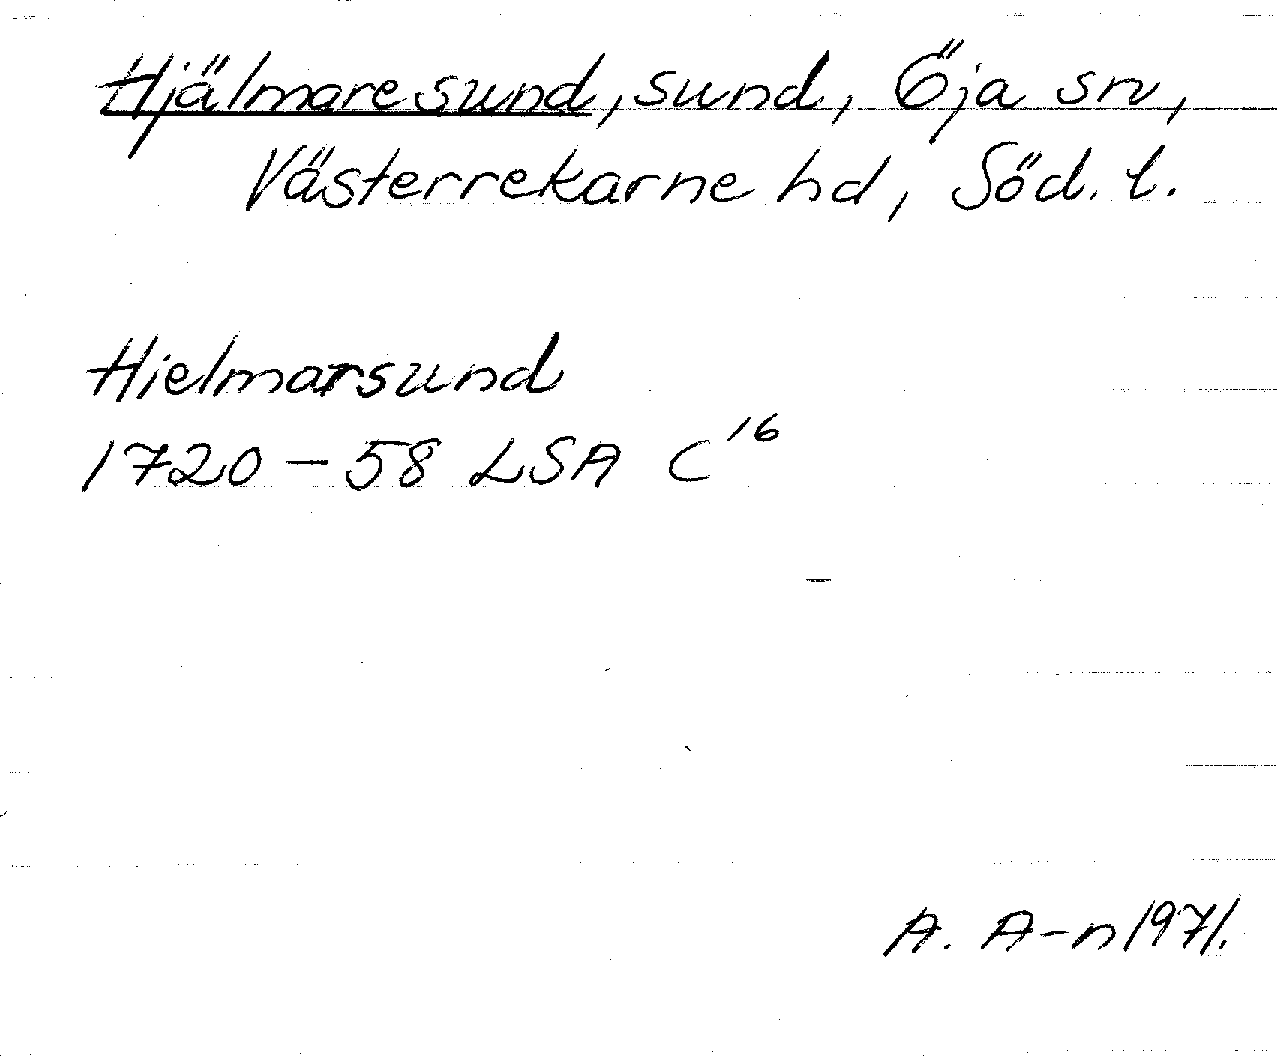 Hjälmaresund, sund, Öja sn,
Västerrekarne hd, Söd. l.
Hielmarsund
1720-58 LSA C¹⁶
A. A-n 1971.